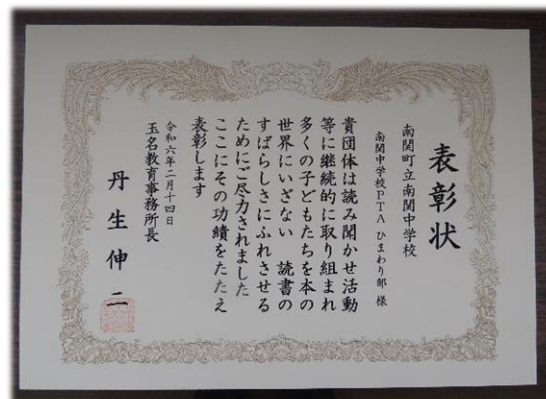 表彰状
南関町立南関中学校
南関中学校PTA ひまわり部 様
貴団体は読み聞かせ活動
等に継続的に取り組まれ
多くの子どもたちを本の
世界にいざない 読書の
すばらしさにふれさせる
ためにご尽力されました
ここにその功績をたたえ
表彰します
令和六年二月十四日
玉名教育事務所長
丹生伸二